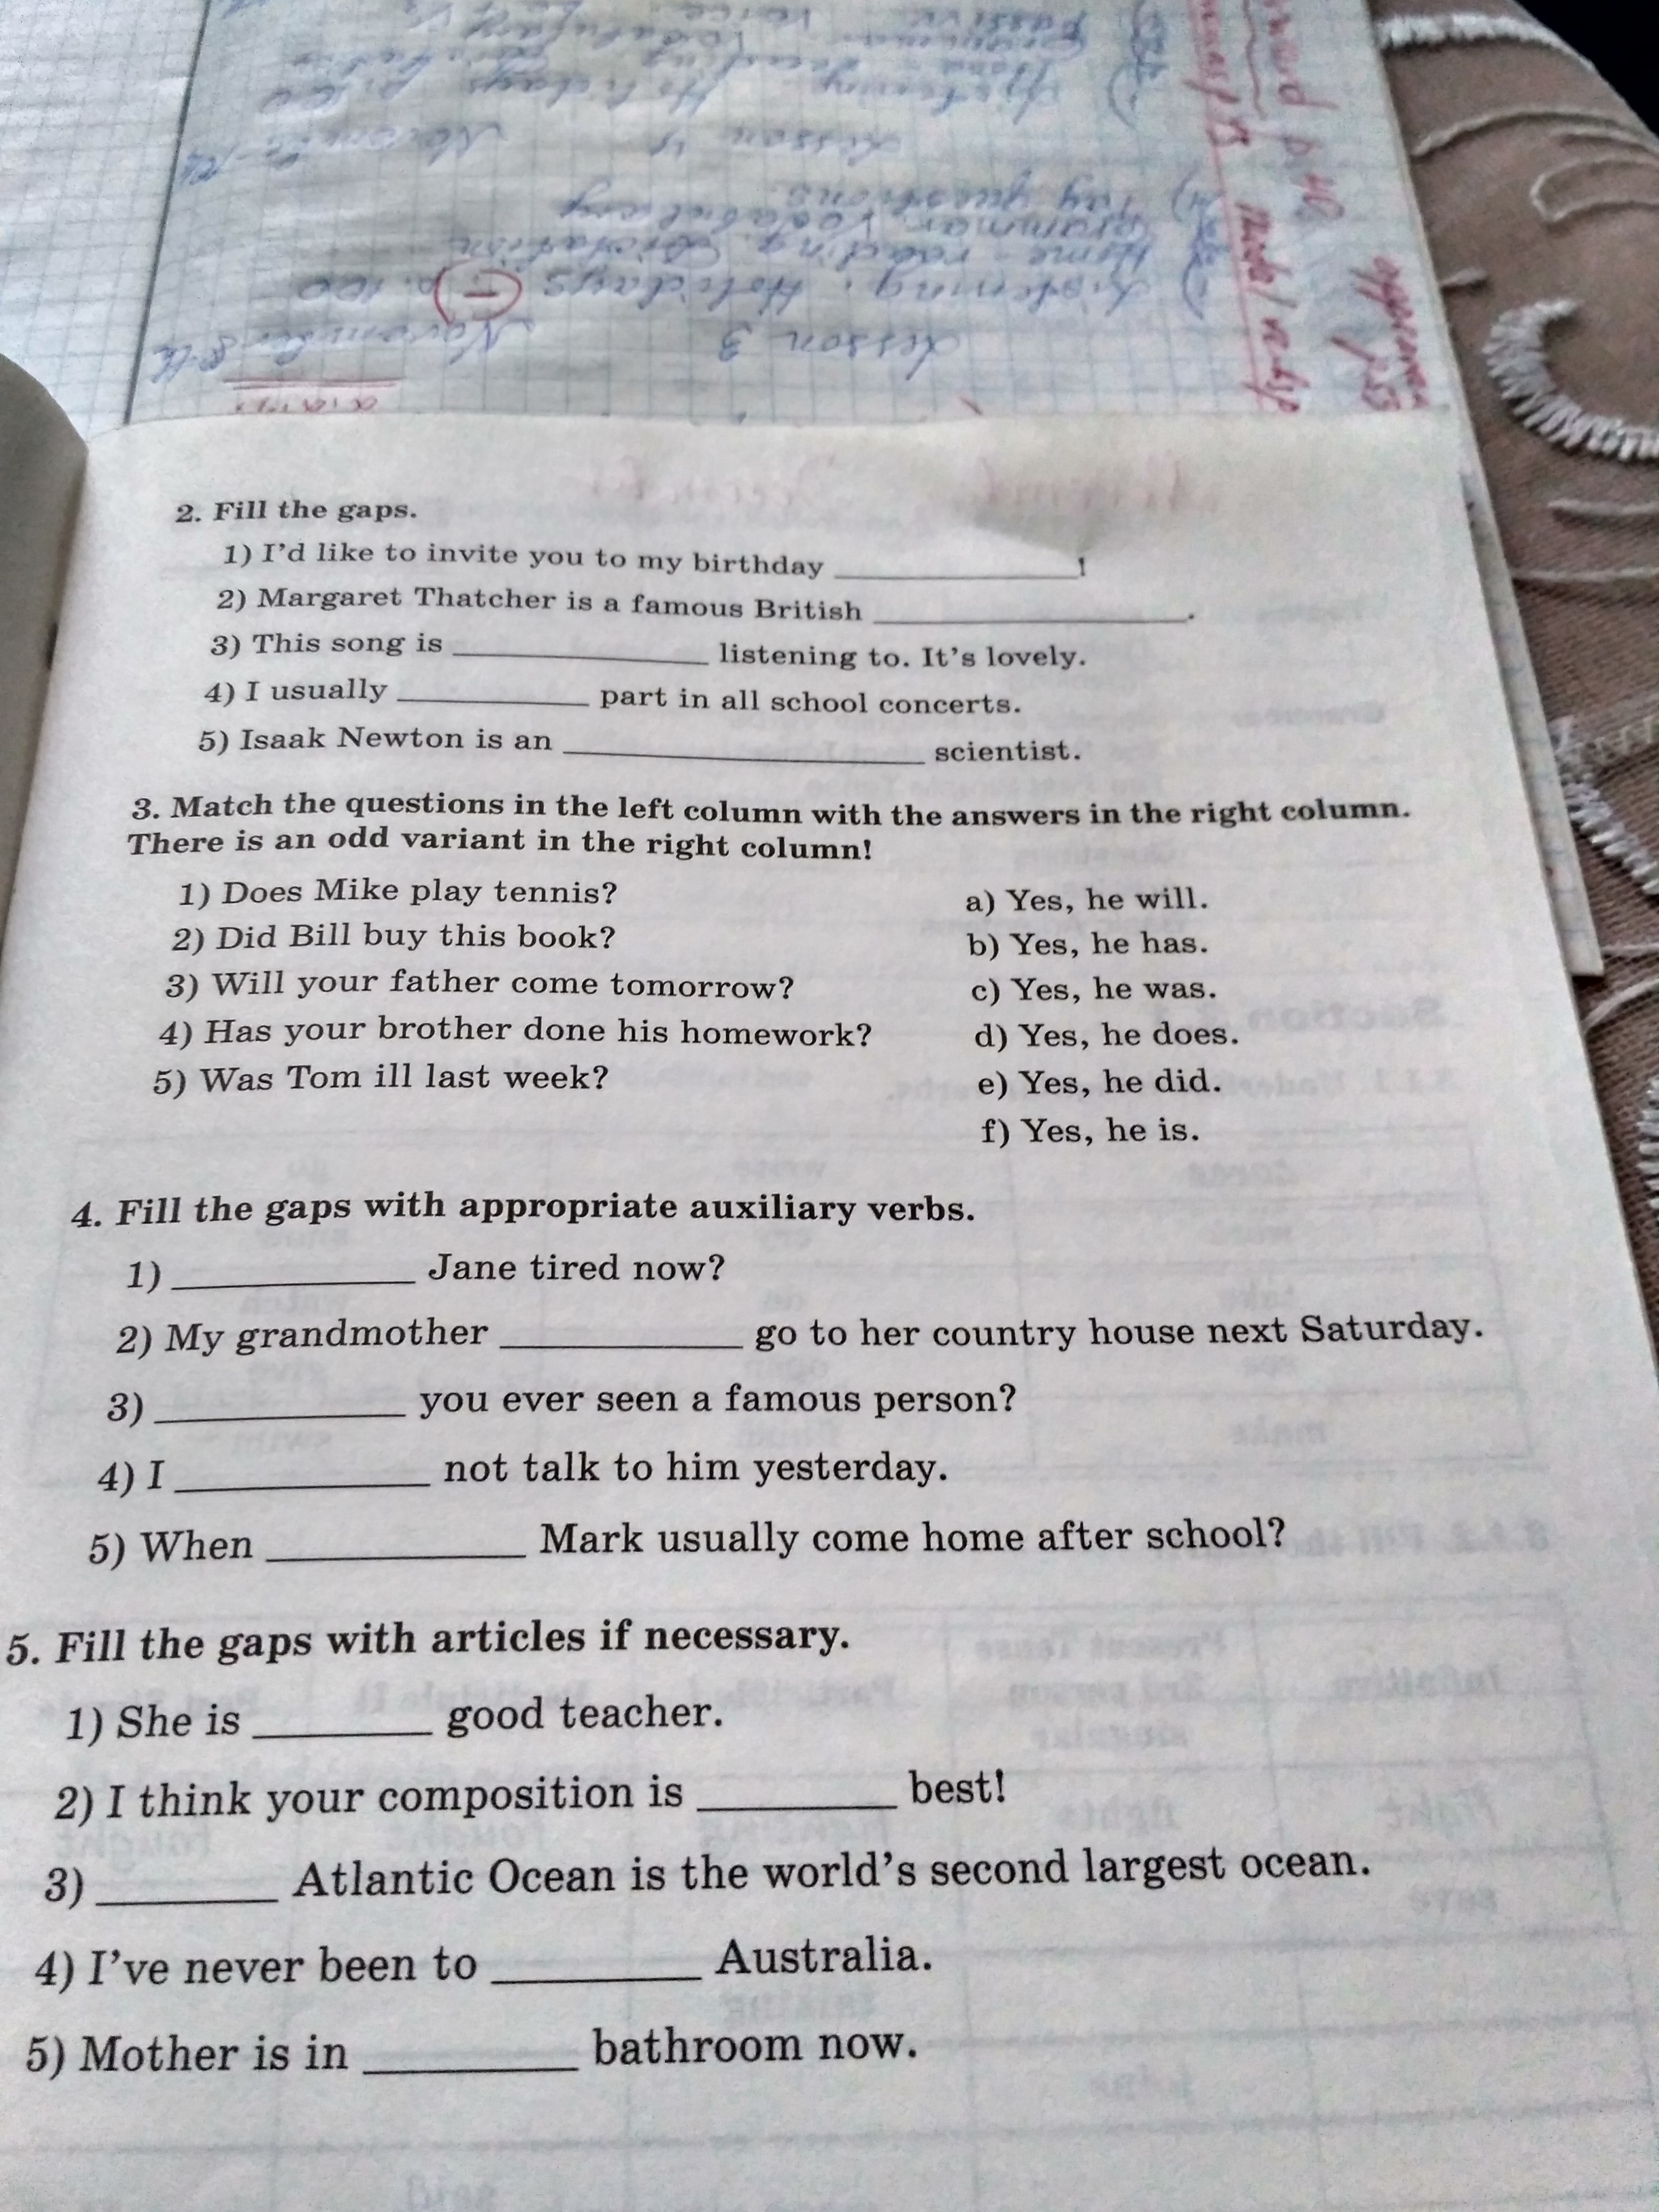 Lesson 3
November 8th
1) Listening. Holidays p. 100
Home-reading. Dictation
Grammar. Vocabulary
Lesson 4
Listening. Holidays p. 100
2. Fill the gaps.
1) I'd like to invite you to my birthday ____________!
2) Margaret Thatcher is a famous British ____________.
3) This song is ____________ listening to. It's lovely.
4) I usually ____________ part in all school concerts.
5) Isaak Newton is an ____________ scientist.
3. Match the questions in the left column with the answers in the right column.
There is an odd variant in the right column!
1) Does Mike play tennis?
2) Did Bill buy this book?
3) Will your father come tomorrow?
4) Has your brother done his homework?
5) Was Tom ill last week?
a) Yes, he will.
b) Yes, he has.
c) Yes, he was.
d) Yes, he does.
e) Yes, he did.
f) Yes, he is.
4. Fill the gaps with appropriate auxiliary verbs.
1) ____________ Jane tired now?
2) My grandmother ____________ go to her country house next Saturday.
3) ____________ you ever seen a famous person?
4) I ____________ not talk to him yesterday.
5) When ____________ Mark usually come home after school?
5. Fill the gaps with articles if necessary.
1) She is ________ good teacher.
2) I think your composition is ________ best!
3) ________ Atlantic Ocean is the world's second largest ocean.
4) I've never been to ________ Australia.
5) Mother is in ________ bathroom now.